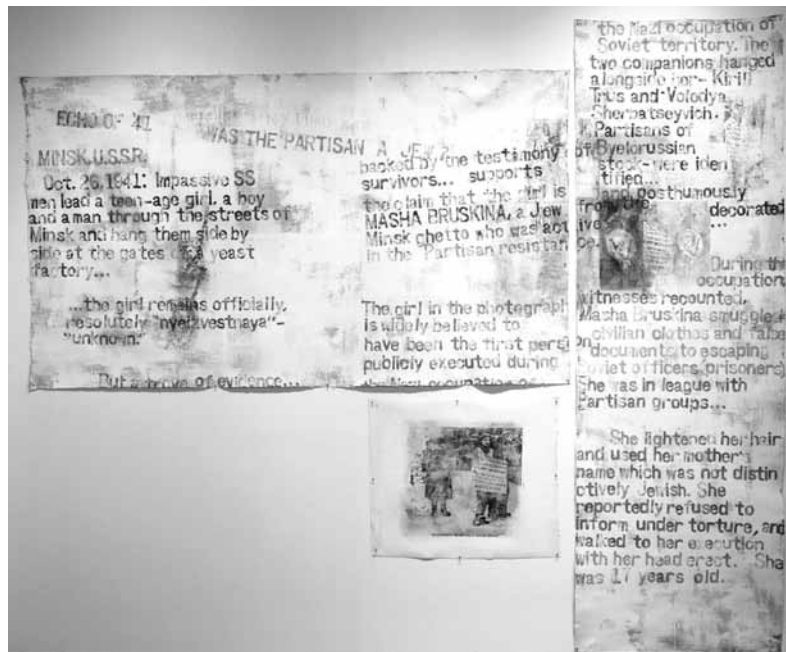 ECHO OF '41
WAS THE PARTISAN A JEW?
MINSK, U.S.S.R.
Oct. 26, 1941: Impassive SS
men lead a teen-age girl, a boy
and a man through the streets of
Minsk and hang them side by
side at the gates of a yeast
factory...
...the girl remains officially,
resolutely "nyeizvestnaya"-
"unknown."
But a trove of evidence...
backed by the testimony of
survivors... supports
the claim that the girl is
MASHA BRUSKINA, a Jew from the
Minsk ghetto who was active
in the Partisan resistance.
The girl in the photograph
is widely believed to
have been the first person
publicly executed during
the Nazi occupation of
the Nazi occupation of
Soviet territory. The
two companions hanged
alongside her- Kirill
Trus and Volodya
Sherbatseyvich.
Partisans of
Byelorussian
stock-were iden
tified...
and posthumously
decorated
...
During the
occupation
witnesses recounted,
Masha Bruskina smuggled
civilian clothes and false
documents to escaping
Soviet officers (prisoners)
She was in league with
Partisan groups...
She lightened her hair
and used her mother's
name which was not distin
ctively Jewish. She
reportedly refused to
inform under torture, and
walked to her execution
with her head erect. She
was 17 years old.